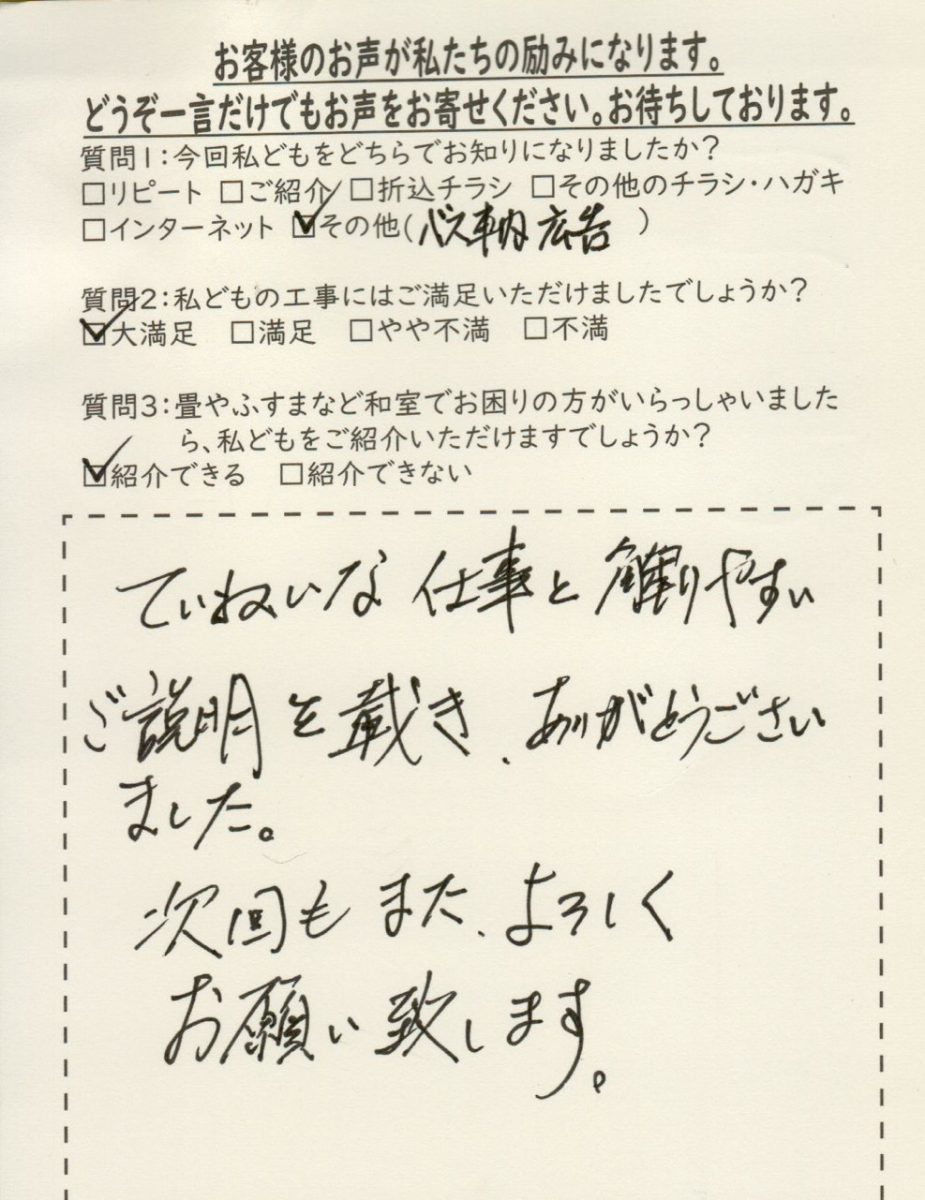 お客様のお声が私たちの励みになります。
どうぞ一言だけでもお声をお寄せください。お待ちしております。
質問1：今回私どもをどちらでお知りになりましたか？
□リピート □ご紹介 □折込チラシ □その他のチラシ・ハガキ
□インターネット ☑その他(バス車内広告)
質問2：私どもの工事にはご満足いただけましたでしょうか？
☑大満足 □満足 □やや不満 □不満
質問3：畳やふすまなど和室でお困りの方がいらっしゃいました
ら、私どもをご紹介いただけますでしょうか？
☑紹介できる □紹介できない
ていねいな仕事と解りやすい
ご説明を戴き、ありがとうござい
ました。
次回もまた、よろしく
お願い致します。